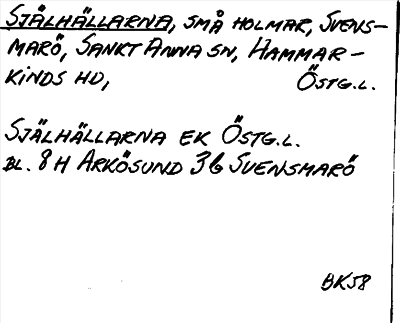 SJÄLHÄLLARNA, SMÅ HOLMAR, SVENS-
MARÖ, SANKT ANNA SN, HAMMAR-
KINDS HD, ÖSTG.L.
SJÄLHÄLLARNA EK ÖSTG.L.
BL. 8 H ARKÖSUND 3b SVENSMARÖ
BK58